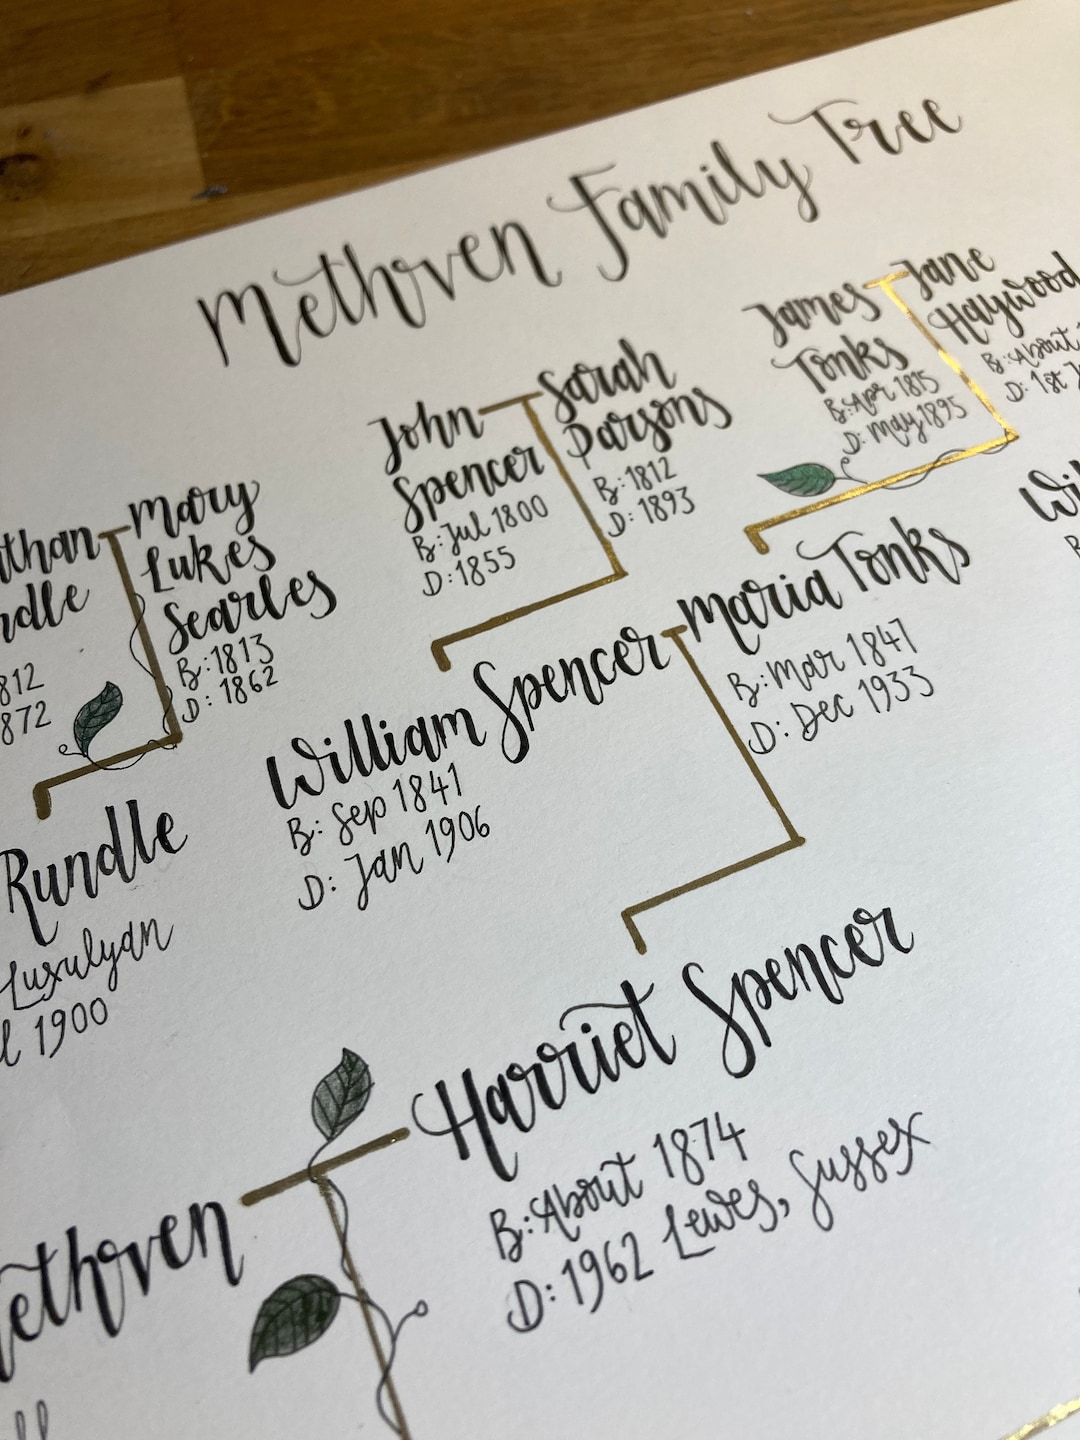 Methven Family Tree
James
Tonks
B: Apr 1815
D: May 1895
Jane
Haywood
B: About
D: 1st
John
Spencer
B: Jul 1800
D: 1855
Sarah
Parsons
B: 1812
D: 1893
Mary
Lukes
Searles
B: 1813
D: 1862
William Spencer
B: Sep 1841
D: Jan 1906
Maria Tonks
B: Mar 1847
D: Dec 1933
Rundle
Luxulyan
1900
Harriet Spencer
B: About 1874
D: 1962 Lewes, Sussex
ethven